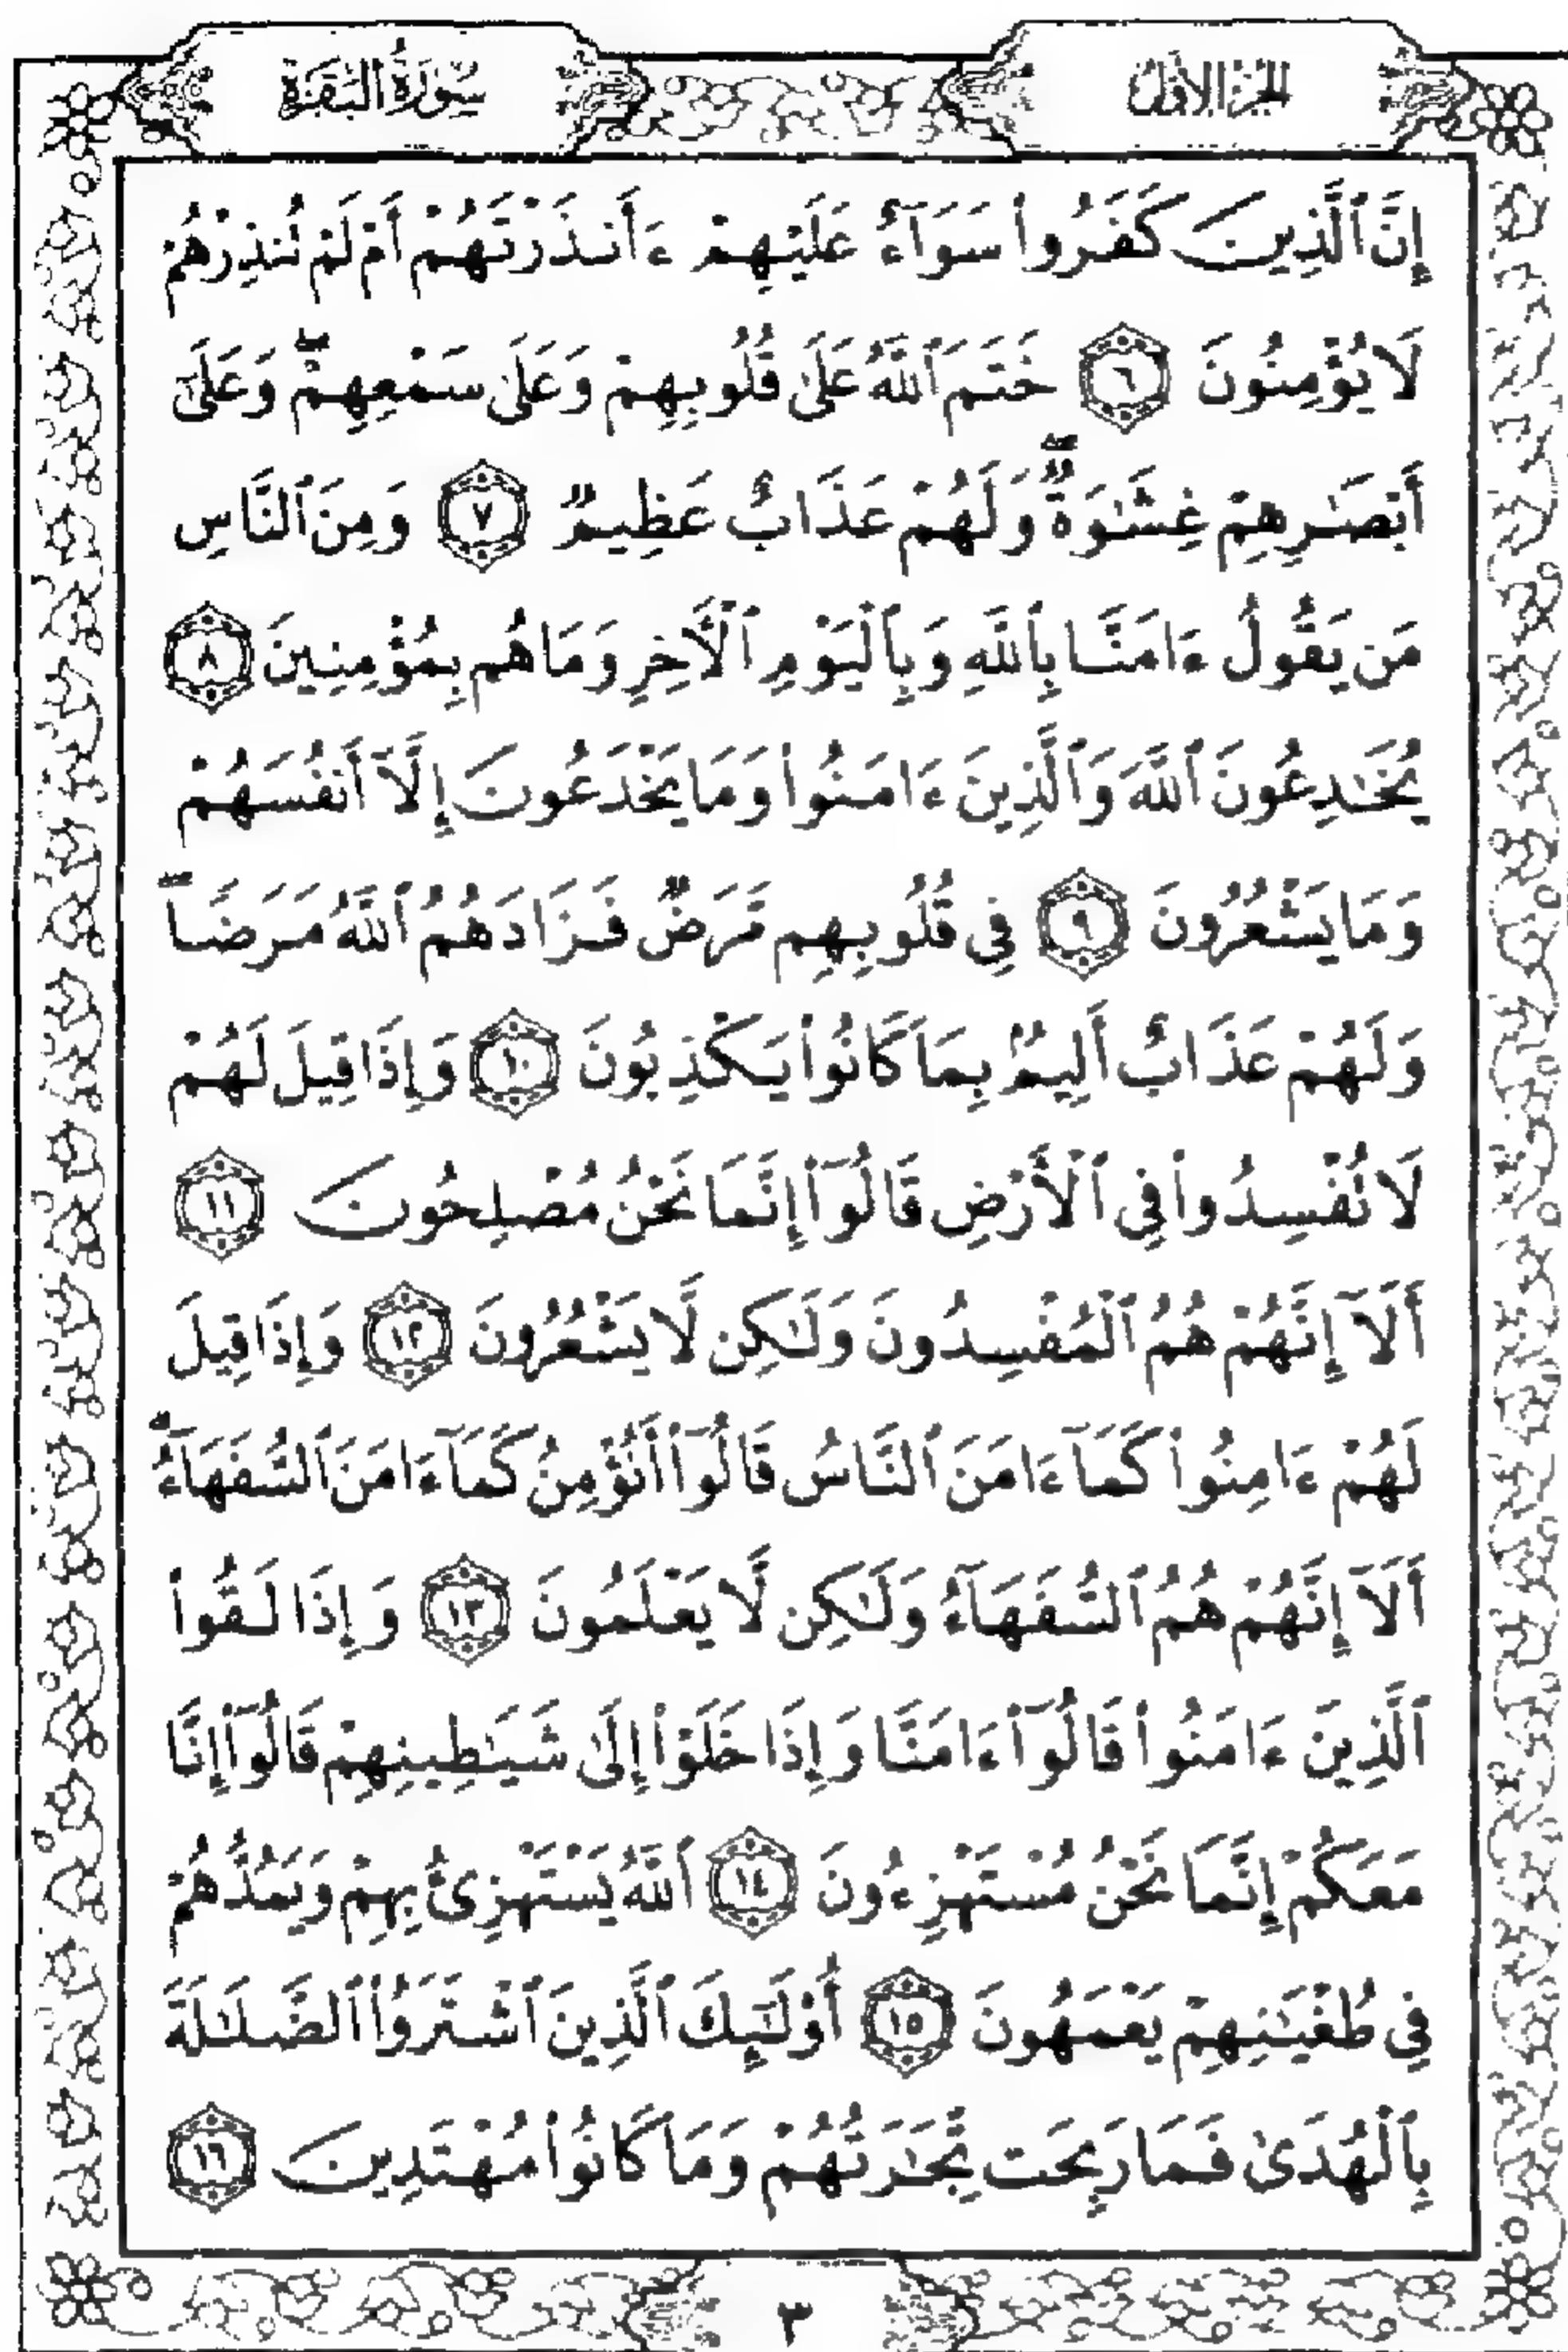 الجزء الأول
سورة البقرة
إِنَّ ٱلَّذِينَ كَفَرُوا۟ سَوَآءٌ عَلَيْهِمْ ءَأَنذَرْتَهُمْ أَمْ لَمْ تُنذِرْهُمْ
لَا يُؤْمِنُونَ ٦ خَتَمَ ٱللَّهُ عَلَىٰ قُلُوبِهِمْ وَعَلَىٰ سَمْعِهِمْ ۖ وَعَلَىٰٓ
أَبْصَـٰرِهِمْ غِشَـٰوَةٌ ۖ وَلَهُمْ عَذَابٌ عَظِيمٌ ٧ وَمِنَ ٱلنَّاسِ
مَن يَقُولُ ءَامَنَّا بِٱللَّهِ وَبِٱلْيَوْمِ ٱلْأَخِرِ وَمَا هُم بِمُؤْمِنِينَ ٨
يُخَـٰدِعُونَ ٱللَّهَ وَٱلَّذِينَ ءَامَنُوا۟ وَمَا يَخْدَعُونَ إِلَّآ أَنفُسَهُمْ
وَمَا يَشْعُرُونَ ٩ فِى قُلُوبِهِم مَّرَضٌ فَزَادَهُمُ ٱللَّهُ مَرَضًا ۖ
وَلَهُمْ عَذَابٌ أَلِيمٌۢ بِمَا كَانُوا۟ يَكْذِبُونَ ١٠ وَإِذَا قِيلَ لَهُمْ
لَا تُفْسِدُوا۟ فِى ٱلْأَرْضِ قَالُوٓا۟ إِنَّمَا نَحْنُ مُصْلِحُونَ ١١
أَلَآ إِنَّهُمْ هُمُ ٱلْمُفْسِدُونَ وَلَـٰكِن لَّا يَشْعُرُونَ ١٢ وَإِذَا قِيلَ
لَهُمْ ءَامِنُوا۟ كَمَآ ءَامَنَ ٱلنَّاسُ قَالُوٓا۟ أَنُؤْمِنُ كَمَآ ءَامَنَ ٱلسُّفَهَآءُ ۗ
أَلَآ إِنَّهُمْ هُمُ ٱلسُّفَهَآءُ وَلَـٰكِن لَّا يَعْلَمُونَ ١٣ وَإِذَا لَقُوا۟
ٱلَّذِينَ ءَامَنُوا۟ قَالُوٓا۟ ءَامَنَّا وَإِذَا خَلَوْا۟ إِلَىٰ شَيَـٰطِينِهِمْ قَالُوٓا۟ إِنَّا
مَعَكُمْ إِنَّمَا نَحْنُ مُسْتَهْزِءُونَ ١٤ ٱللَّهُ يَسْتَهْزِئُ بِهِمْ وَيَمُدُّهُمْ
فِى طُغْيَـٰنِهِمْ يَعْمَهُونَ ١٥ أُو۟لَـٰٓئِكَ ٱلَّذِينَ ٱشْتَرَوُا۟ ٱلضَّلَـٰلَةَ
بِٱلْهُدَىٰ فَمَا رَبِحَت تِّجَـٰرَتُهُمْ وَمَا كَانُوا۟ مُهْتَدِينَ ١٦
٣